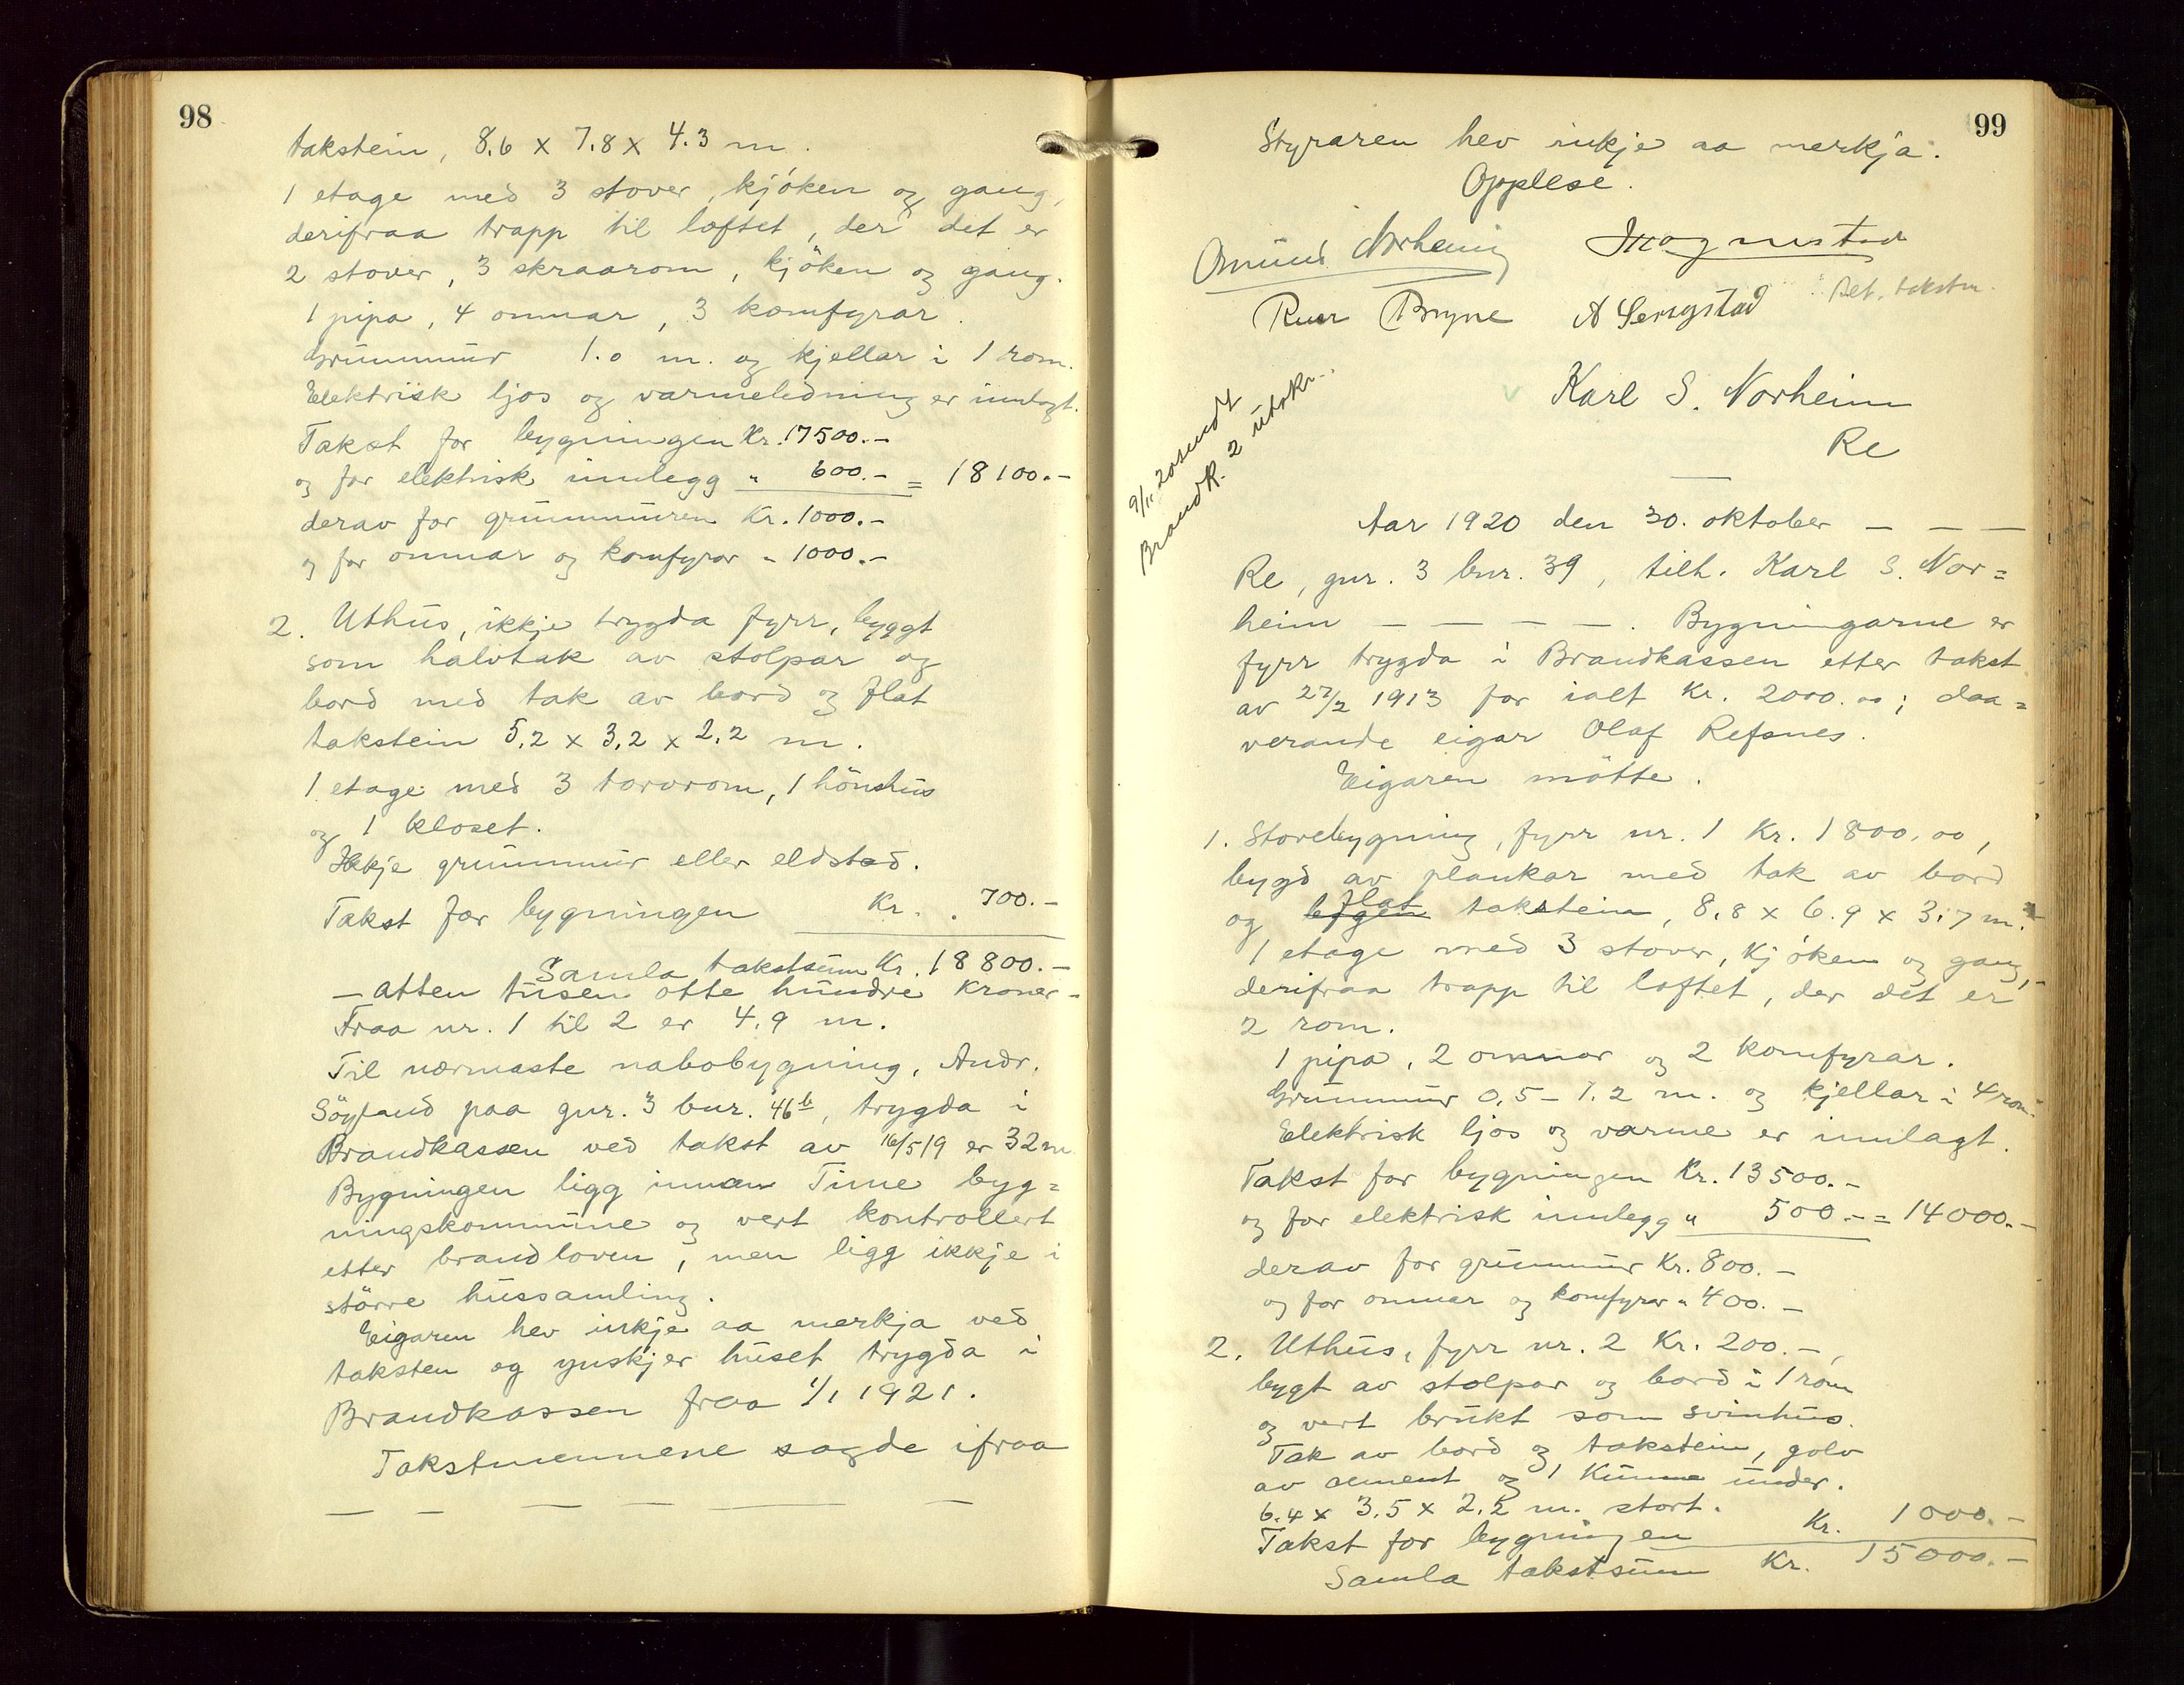 98
takstein, 8.6 x 7.8 x 4.3 m.
1 etage med 3 stover, kjöken og gang,
derifraa trapp til loftet, der det er
2 stover, 3 skraarom, kjöken og gang.
1 pipa, 4 omnar, 3 komfyrar.
Grunnmur 1.0 m. og kjellar i 1 rom.
Elektrisk ljos og varmeledning er innlagt.
Takst for bygningen Kr. 17500.-
og for elektrisk innlegg " 600.- = 18100.-
derav for grunnmuren Kr. 1000.-
og for omnar og komfyrar " 1000.-
2. Uthus, ikkje trygda fyrr, byggt
som halvtak av stolpar og
bord med tak av bord og flat
takstein 5.2 x 3.2 x 2.2 m.
1 etage med 3 torvrom, 1 hönshus
og 1 kloset.
Ikkje grunnmur eller eldstad.
Takst for bygningen Kr. 700.-
Samla takstsum Kr. 18800.-
- atten tusen otte hundre kroner -
Fraa nr. 1 til 2 er 4.9 m.
Til nærmaste nabobygning, Andr.
Söyland paa gnr. 3 bnr. 46b, trygda i
Brandkassen ved takst av 16/5 19 er 32 m
Bygningen ligg innan Time byg=
ningskommune og vert kontrollert
etter brandloven, men ligg ikkje i
större hussamling.
Eigaren hev inkje aa merkja ved
taksten og ynskjer huset trygda i
Brandkassen fraa 1/1 1921.
Takstmennene sagde ifraa
— — — — — —
99
Styraren hev inkje aa merkja.
Opplese.
Omund Norheim Magnustad
Ruer Bryne A Serigstad Ret. takstm.
Karl S. Norheim
Re
9/11 20 sendt
Brandk. 2 utskr.
Aar 1920 den 30. oktober — — —
Re, gnr. 3 bnr. 39, tilh. Karl S. Nor=
heim — — — —. Bygningarne er
fyrr trygda i Brandkassen etter takst
av 27/2 1913 for ialt Kr. 2000.00; daa=
verande eigar Olaf Refsnes.
Eigaren mötte.
1. Stovebygning, fyrr nr. 1 Kr. 1800.00,
bygd av plankar med tak av bord
og flat takstein, 8.8 x 6.9 x 3.7 m.
1 etage med 3 stover, kjöken og gang,
derifraa trapp til loftet, der det er
2 rom.
1 pipa, 2 omnar og 2 komfyrar.
Grunnmur 0.5 - 1.2 m. og kjellar i 4 rom.
Elektrisk ljos og varme er innlagt.
Takst for bygningen Kr. 13500.-
og for elektrisk innlegg " 500.- = 14000.-
derav for grunnmur Kr. 800.-
og for omnar og komfyrar " 400.-
2. Uthus, fyrr nr. 2 Kr. 200.-,
bygt av stolpar og bord i 1 rom
og vert brukt som svinhus.
Tak av bord og takstein, golv
av cement og 1 kumme under.
6.4 x 3.5 x 2.2 m. stort.
Takst for bygningen Kr. 1000.-
Samla takstsum Kr. 15000.-